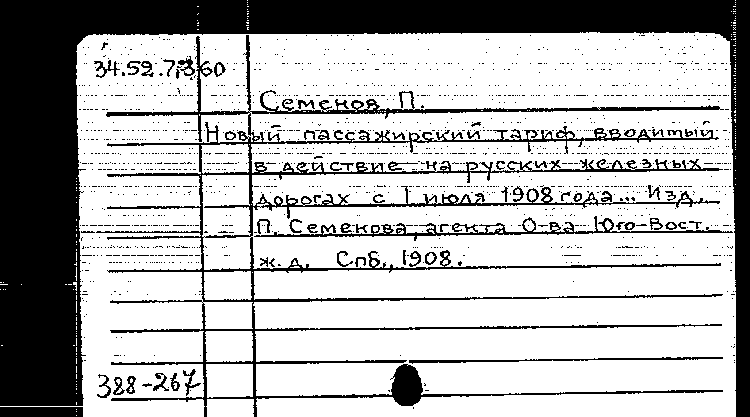 34.52.7.360
Семенов, П.
Новый пассажирский тариф, вводимый
в действие на русских железных
дорогах с 1 июля 1908 года... Изд.
П. Семенова, агента О-ва Юго-Вост.
ж. д. Спб., 1908.
388-267